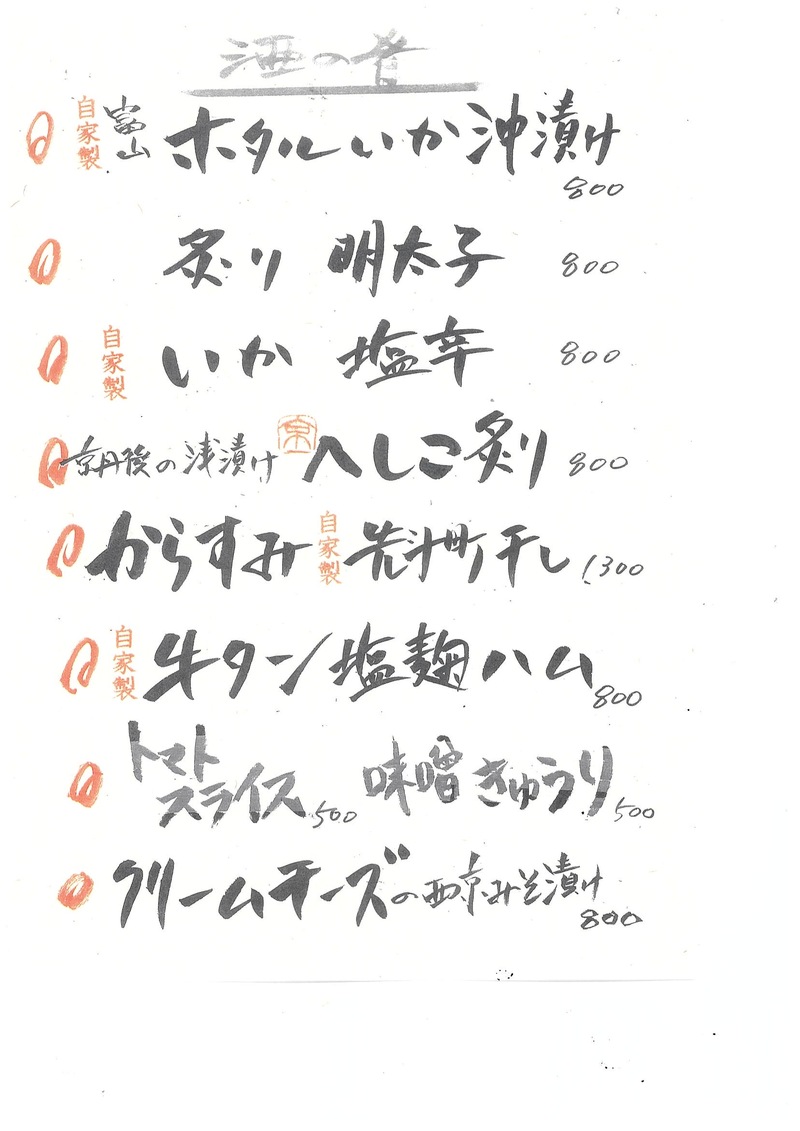 酒の肴
自家製 富山 ホタルいか沖漬け
800
炙り 明太子 800
自家製 いか 塩辛 800
京丹後の浅漬け 京 へしこ炙り 800
からすみ 自家製 干し 1300
自家製 牛タン塩麹ハム
800
トマト
スライス 500 味噌きゅうり 500
クリームチーズの西京みそ漬け
800